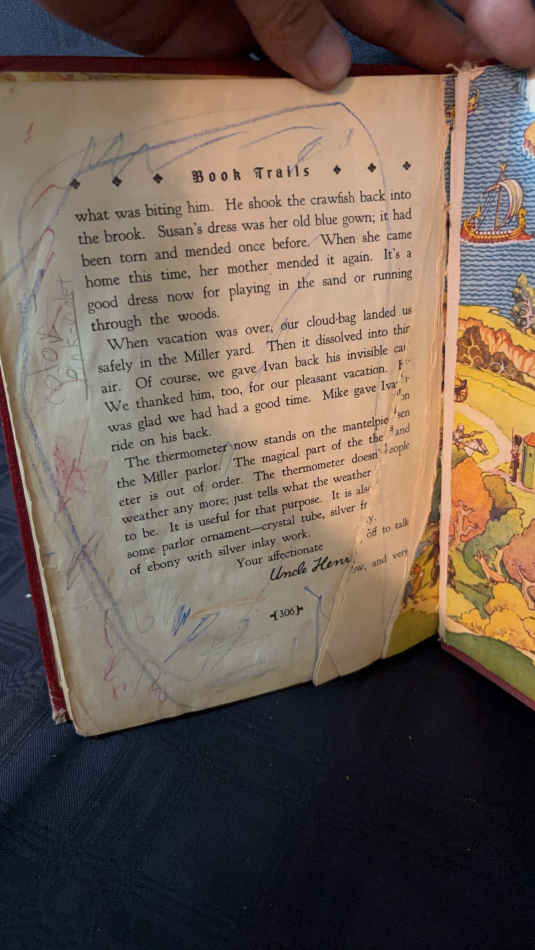 Book Trails
what was biting him. He shook the crawfish back into
the brook. Susan's dress was her old blue gown; it had
been torn and mended once before. When she came
home this time, her mother mended it again. It's a
good dress now for playing in the sand or running
through the woods.
When vacation was over, our cloud-bag landed us
safely in the Miller yard. Then it dissolved into thin
air. Of course, we gave Ivan back his invisible ca
We thanked him, too, for our pleasant vacation.
was glad we had had a good time. Mike gave Iva
ride on his back.
The thermometer now stands on the mantelpie
the Miller parlor. The magical part of the the
eter is out of order. The thermometer doesn'
weather any more; just tells what the weather
to be. It is useful for that purpose. It is als
some parlor ornament—crystal tube, silver fr
of ebony with silver inlay work.
Your affectionate
Uncle Henr
306
and
eople
off to talk
and very